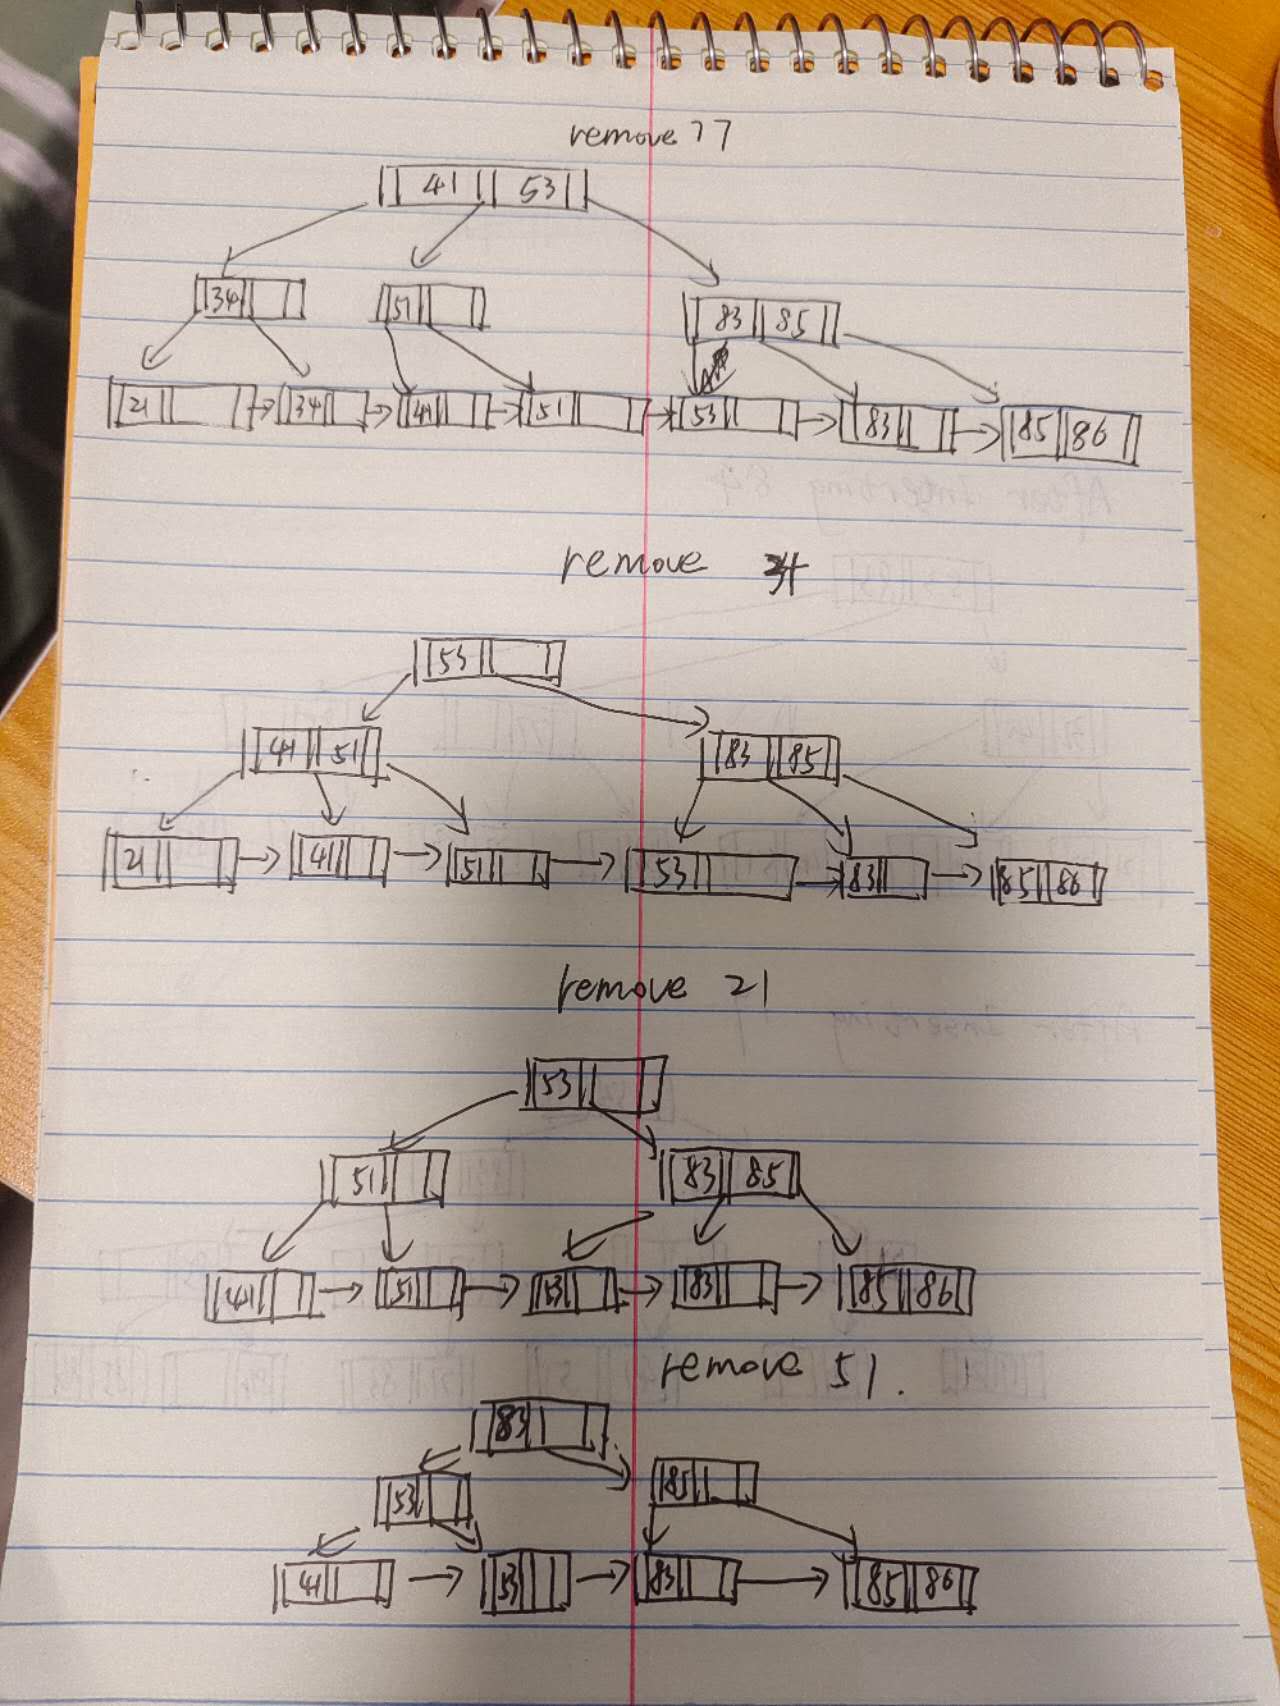 remove 77
41 53
34 51 83 85
21 34 41 51 53 83 85 86
remove 34
53
41 51 83 85
21 41 51 53 83 85 86
remove 21
53
51 83 85
41 51 53 83 85 86
remove 51.
83
53 85
41 53 83 85 86